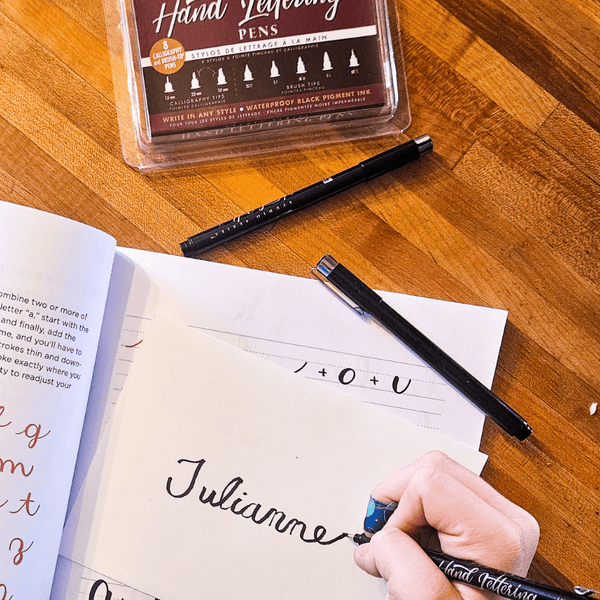 Hand Lettering
PENS
8
CALLIGRAPHY
and BRUSH-TIP
PENS
STYLOS DE LETTRAGE À LA MAIN
CALLIGRAPHY TIPS
POINTES CALLIGRAPHIE
BRUSH TIPS
POINTES PINCEAU
WRITE IN ANY STYLE • WATERPROOF BLACK PIGMENT INK
POUR TOUS LES STYLES DE LETTRAGE • ENCRE PIGMENTÉE NOIRE IMPERMÉABLE
HAND LETTERING PENS
ombine two or more of
letter "a," start with the
and finally, add the
me, and you'll have to
trokes thin and down-
oke exactly where you
ty to readjust your
+ O + U
g
m
t
z
Julianne
Hand Lettering